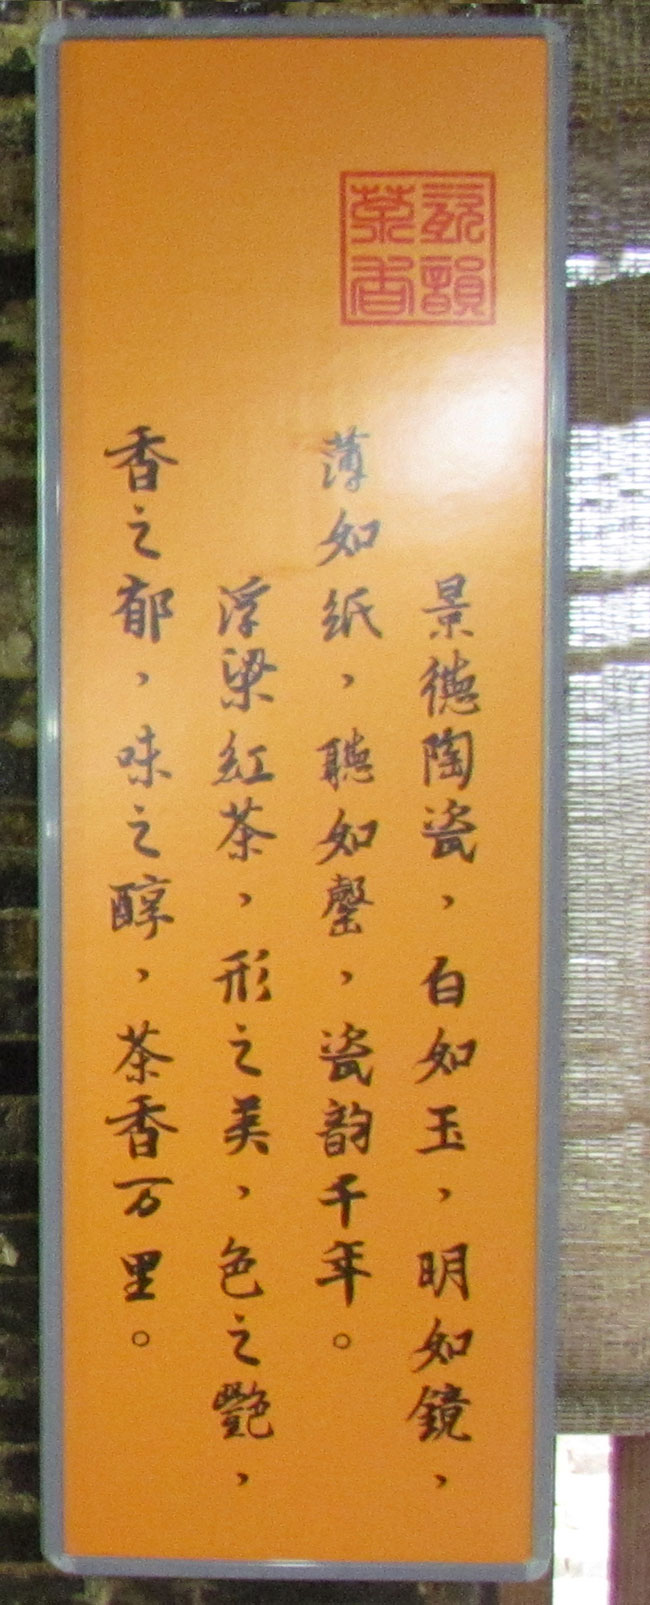 瓷韻
茶香
景德陶瓷，白如玉，明如鏡，
薄如纸，聽如罄，瓷韵千年。
浮梁紅茶，形之美，色之艷，
香之郁，味之醇，茶香万里。